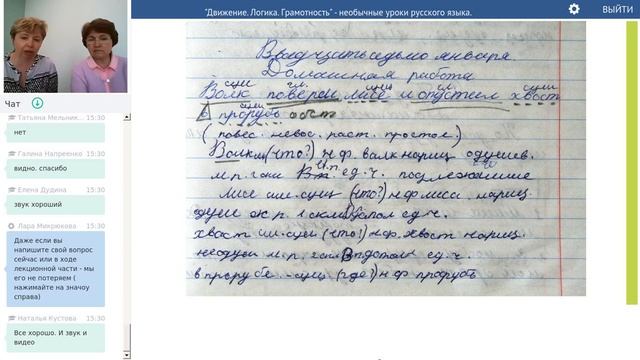 "Движение. Логика. Грамотность" - необычные уроки русского языка.
ВЫЙТИ
Чат
Татьяна Мельник... 15:30
нет
Галина Напреенко 15:30
видно. спасибо
Елена Дудина 15:30
звук хороший
Лара Микрюкова 15:30
Даже если вы
напишите свой вопрос
сейчас или в ходе
лекционной части - мы
его не потеряем (
нажимайте на значоу
справа)
Наталья Кустова 15:30
Все хорошо. И звук и
видео
Домашная работа
сущ гл. сущ гл. сущ
Волк поверен лисе и опустеил хвост
сущ
в прорубь
(повес. невос. раст. простое.)
Волк (что?) н.ф. валк нариц. одушев.
м.р. ед.ч. подлежашие
лисе им.сущ (что?) н.ф лиса. нариц.
одуш ж.р. 1 скл допол ед.ч.
хваст им.сущ (что!) н.ф. хвост нариц.
неодуш м.р. допол ед.ч.
в прорубе. - сущ (где?) н.ф прорубь